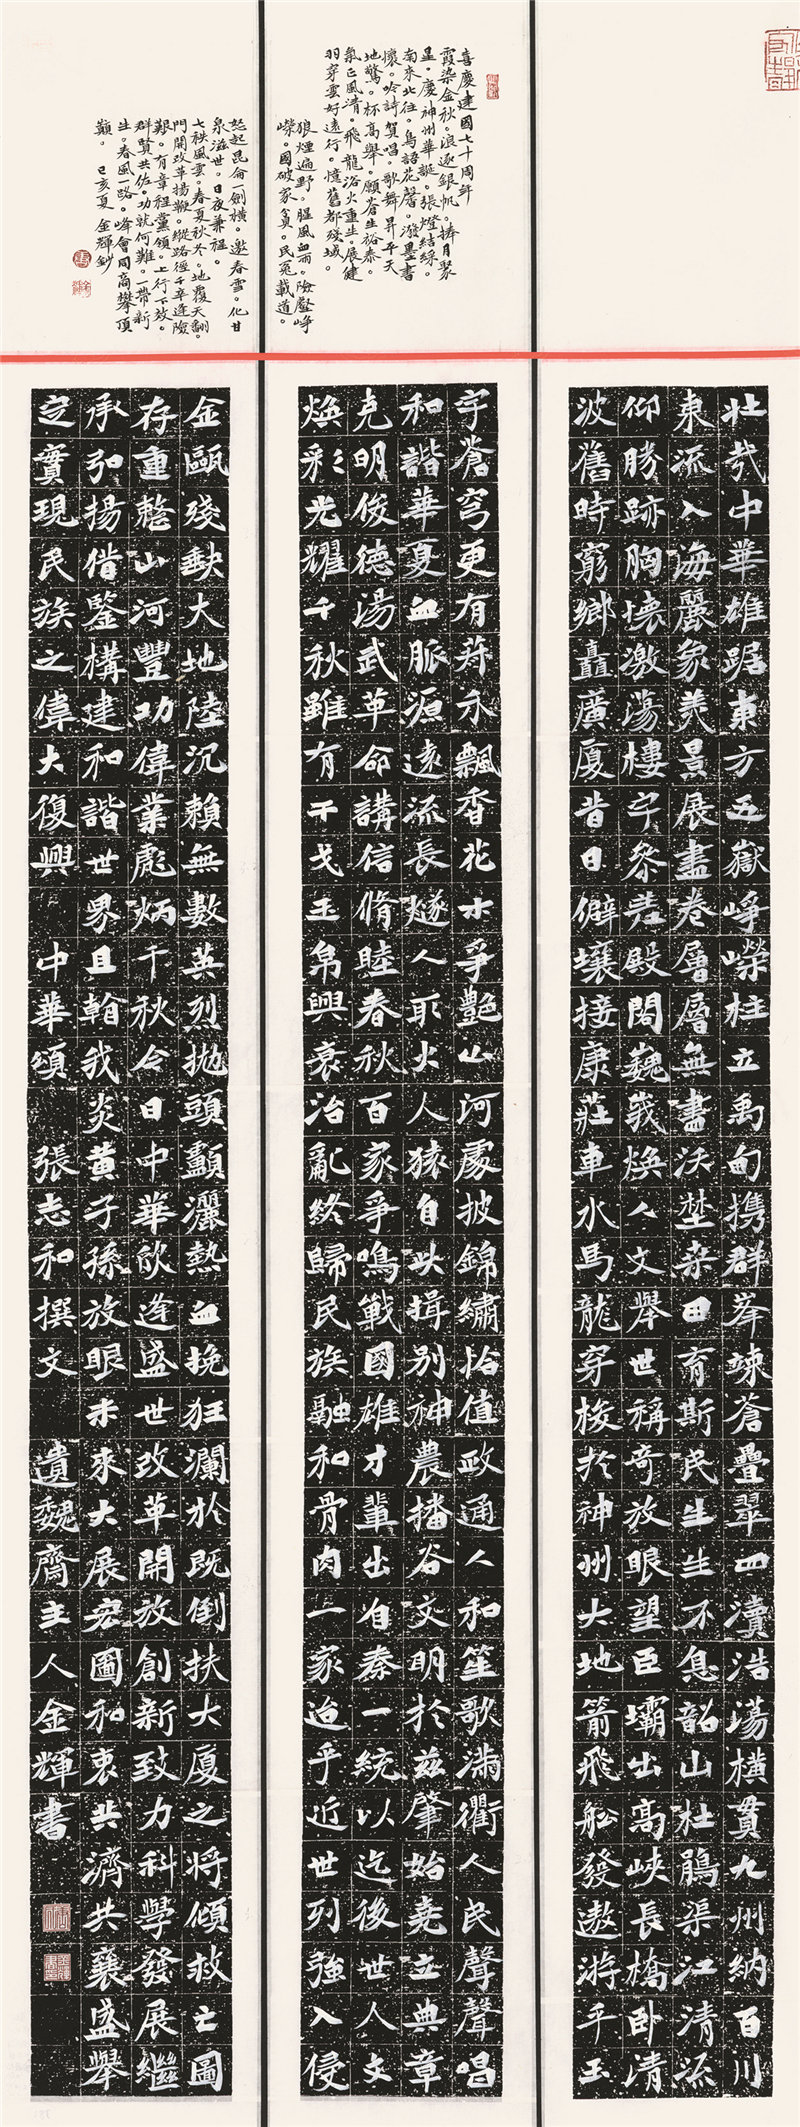 喜慶建國七十周年
霞染金秋。浪逐銀帆。捧月聚
星。慶神州華誕。張燈結綵。
南來北往。鳥語花馨。潑墨書
懷。吟詩賀唱。歌舞昇平天
地驚。杯高舉。願蒼生裕泰。
氣正風清。飛龍浴火重生。展健
羽穿雲好遠行。憶舊都殘域。
狼煙遍野。腥風血雨。險壑崢
嶸。國破家貧。民冤載道。
怒起昆侖一劍橫。邀春雪。化甘
泉滋世。日夜兼程。
七秩風雲。春夏秋冬。地覆天翻。
門開改革揚鞭。縱路徑千辛逢險
艱。有章程黨領。上行下效。
群賢共佐。功就何難。一帶新
生。春風一路。峰會同商攀頂
巔。己亥夏金輝鈔
壯哉中華雄踞東方五嶽崢嶸柱立禹甸攜群峯竦蒼疊翠四瀆浩蕩橫貫九州納百川
東流入海麗象美景展盡卷層層無盡沃埜桑田育斯民生生不息韶山杜鵑渠江清流
仰勝跡胸懷激蕩樓宇叅差殿閣巍峩煥人文舉世稱奇放眼望巨壩出高峽長橋臥清
波舊時窮鄉矗廣厦昔日僻壤接康莊車水馬龍穿梭於神州大地箭飛舩發遨游乎玉
宇蒼穹更有荷禾飄香花木爭艷山河處披錦繡恰值政通人和笙歌滿衢人民聲聲唱
和諧華夏血脈源遠流長燧人取火人猿自此揖別神農播谷文明於茲肇始堯立典章
克明俊德湯武革命講信脩睦春秋百家爭鳴戰國雄才輩出自秦一統以迄後世人文
煥彩光耀千秋雖有干戈玉帛興衰治亂終歸民族融和骨肉一家迨乎近世列強入侵
金甌殘缺大地陸沉賴無數英烈拋頭顱灑熱血挽狂瀾於既倒扶大厦之將傾救亡圖
存重整山河豐功偉業彪炳千秋今日中華欣逢盛世改革開放創新致力科學發展繼
承弘揚借鑒構建和諧世界且翰我炎黃子孫放眼未來大展宏圖和衷共濟共襄盛舉
定實現民族之偉大復興 中華頌 張志和撰文 遺魏齋主人金輝書